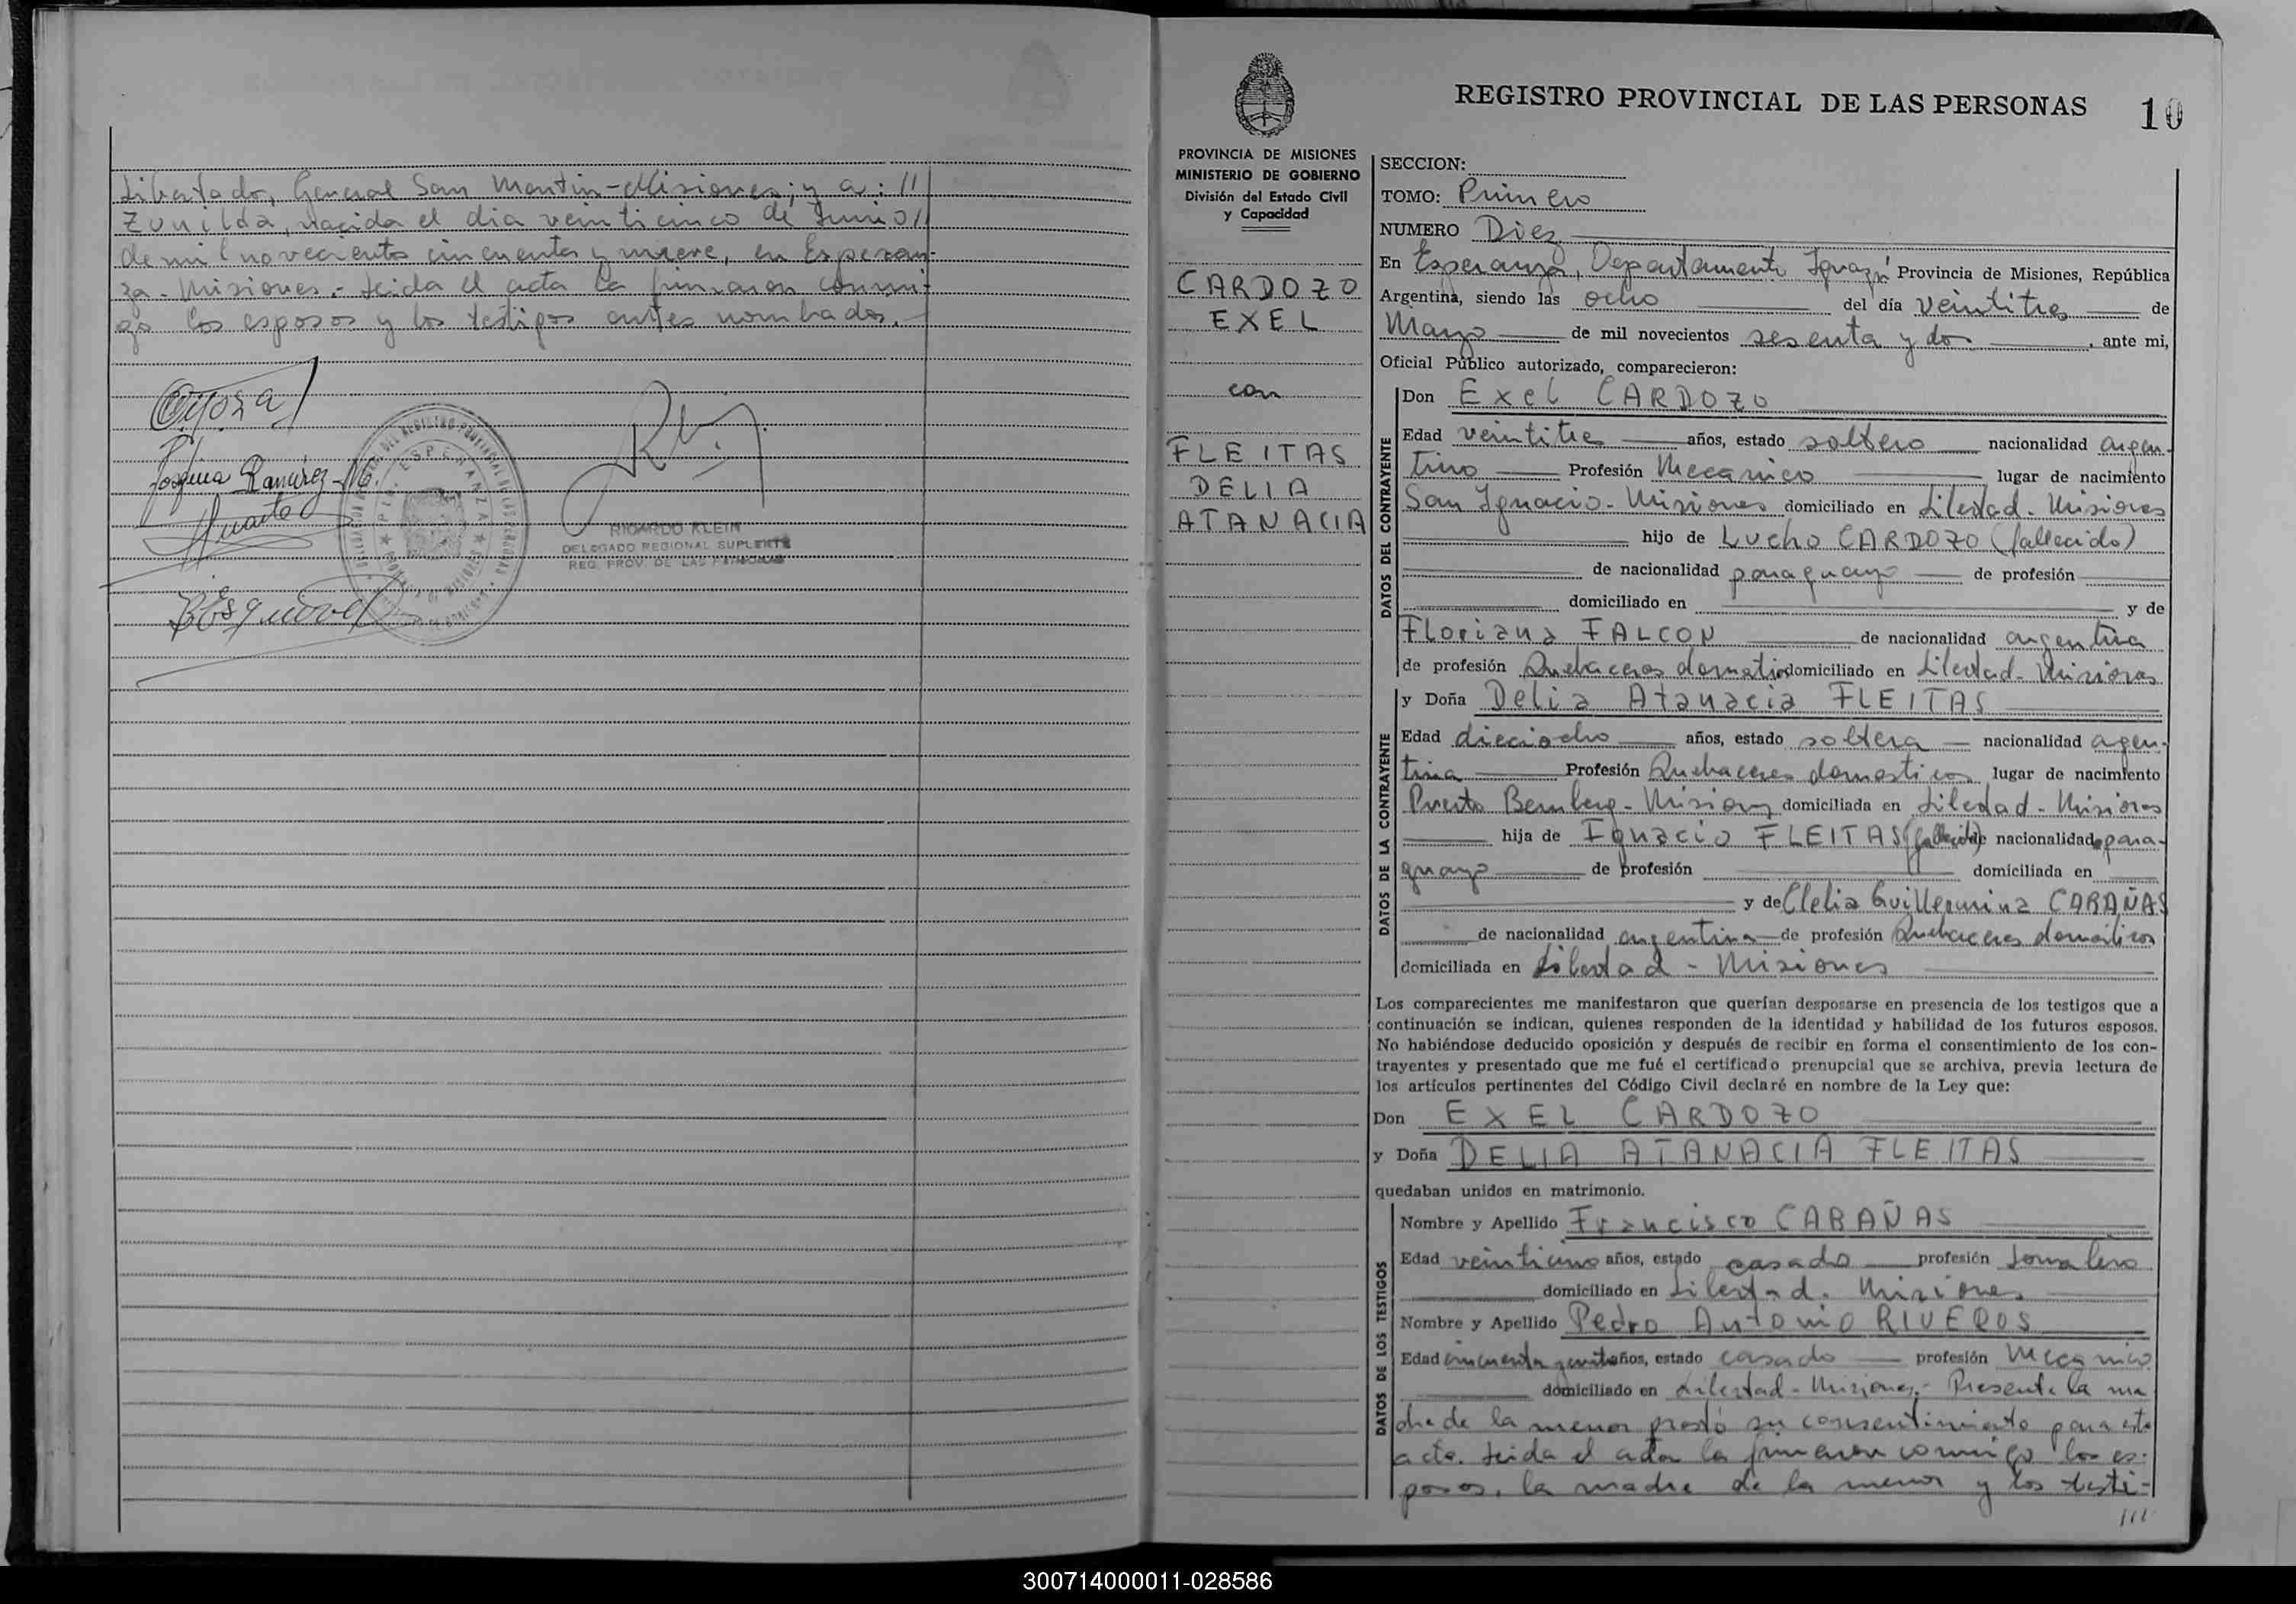 Libertador General San Martin - Misiones; y a: //
Zunilda, nacida el dia veinticinco de Junio //
de mil novecientos cincuenta y nueve, en Esperan-
za - Misiones.- Leida el acta la firmaron conmi-
go los esposos y los testigos antes nombrados.-
Josefina Ramirez
Huarte
B Esquivel
DELEGACION DEL REGISTRO PROVINCIAL DE LAS PERSONAS
ESPERANZA
RICARDO KLEIN
DELEGADO REGIONAL SUPLENTE
REG. PROV. DE LAS PERSONAS
REGISTRO PROVINCIAL DE LAS PERSONAS 10
PROVINCIA DE MISIONES
MINISTERIO DE GOBIERNO
División del Estado Civil
y Capacidad
CARDOZO
EXEL
con
FLEITAS
DELIA
ATANACIA
SECCION:
TOMO: Primero
NUMERO Diez
En Esperanza, Departamento Iguazú Provincia de Misiones, República
Argentina, siendo las ocho del día veintitres de
Marzo de mil novecientos sesenta y dos, ante mi,
Oficial Público autorizado, comparecieron:
DATOS DEL CONTRAYENTE
Don Exel CARDOZO
Edad veintitres años, estado soltero nacionalidad argen-
tino Profesión Mecanico lugar de nacimiento
San Ignacio - Misiones domiciliado en Libertad - Misiones
hijo de Lucho CARDOZO (fallecido)
de nacionalidad paraguayo de profesión
domiciliado en y de
Floriana FALCON de nacionalidad argentina
de profesión Quehaceres domestico domiciliado en Libertad - Misiones
DATOS DE LA CONTRAYENTE
y Doña Delia Atanacia FLEITAS
Edad dieciocho años, estado soltera nacionalidad agen-
tina Profesión Quehaceres domesticos lugar de nacimiento
Puerto Bemberg - Misiones domiciliada en Libertad - Misiones
hija de Ignacio FLEITAS (fallecido) de nacionalidad para-
guayo de profesión domiciliada en
y de Clelia Guillermina CABAÑAS
de nacionalidad argentina de profesión Quehaceres domesticos
domiciliada en Libertad - Misiones
Los comparecientes me manifestaron que querían desposarse en presencia de los testigos que a
continuación se indican, quienes responden de la identidad y habilidad de los futuros esposos.
No habiéndose deducido oposición y después de recibir en forma el consentimiento de los con-
trayentes y presentado que me fué el certificado prenupcial que se archiva, previa lectura de
los artículos pertinentes del Código Civil declaré en nombre de la Ley que:
Don EXEL CARDOZO
y Doña DELIA ATANACIA FLEITAS
quedaban unidos en matrimonio.
DATOS DE LOS TESTIGOS
Nombre y Apellido Francisco CABAÑAS
Edad veinticinco años, estado casado profesión Jornalero
domiciliado en Libertad - Misiones
Nombre y Apellido Pedro Antonio RIVEROS
Edad cincuenta y años, estado casado profesión Mecanico
domiciliado en Libertad - Misiones.- Presente la ma
dre de la menor prestó su consentimiento para este
acto. Leida el acta la firmaron conmigo los es-
posos, la madre de la menor y los testi-
///
300714000011-028586